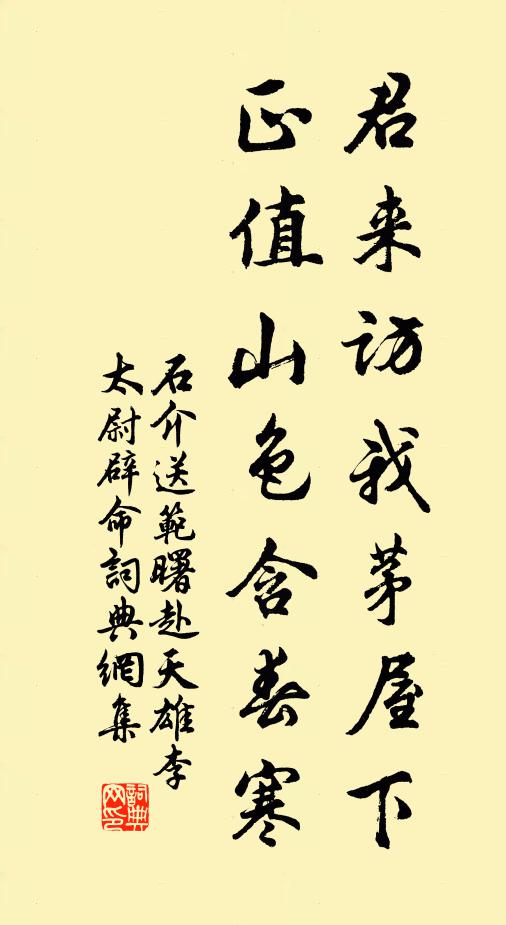 君来訪我茅屋下
正值山色含春寒
石介送範曙赴天雄李
太尉辟命詞典網集
詞典
网印